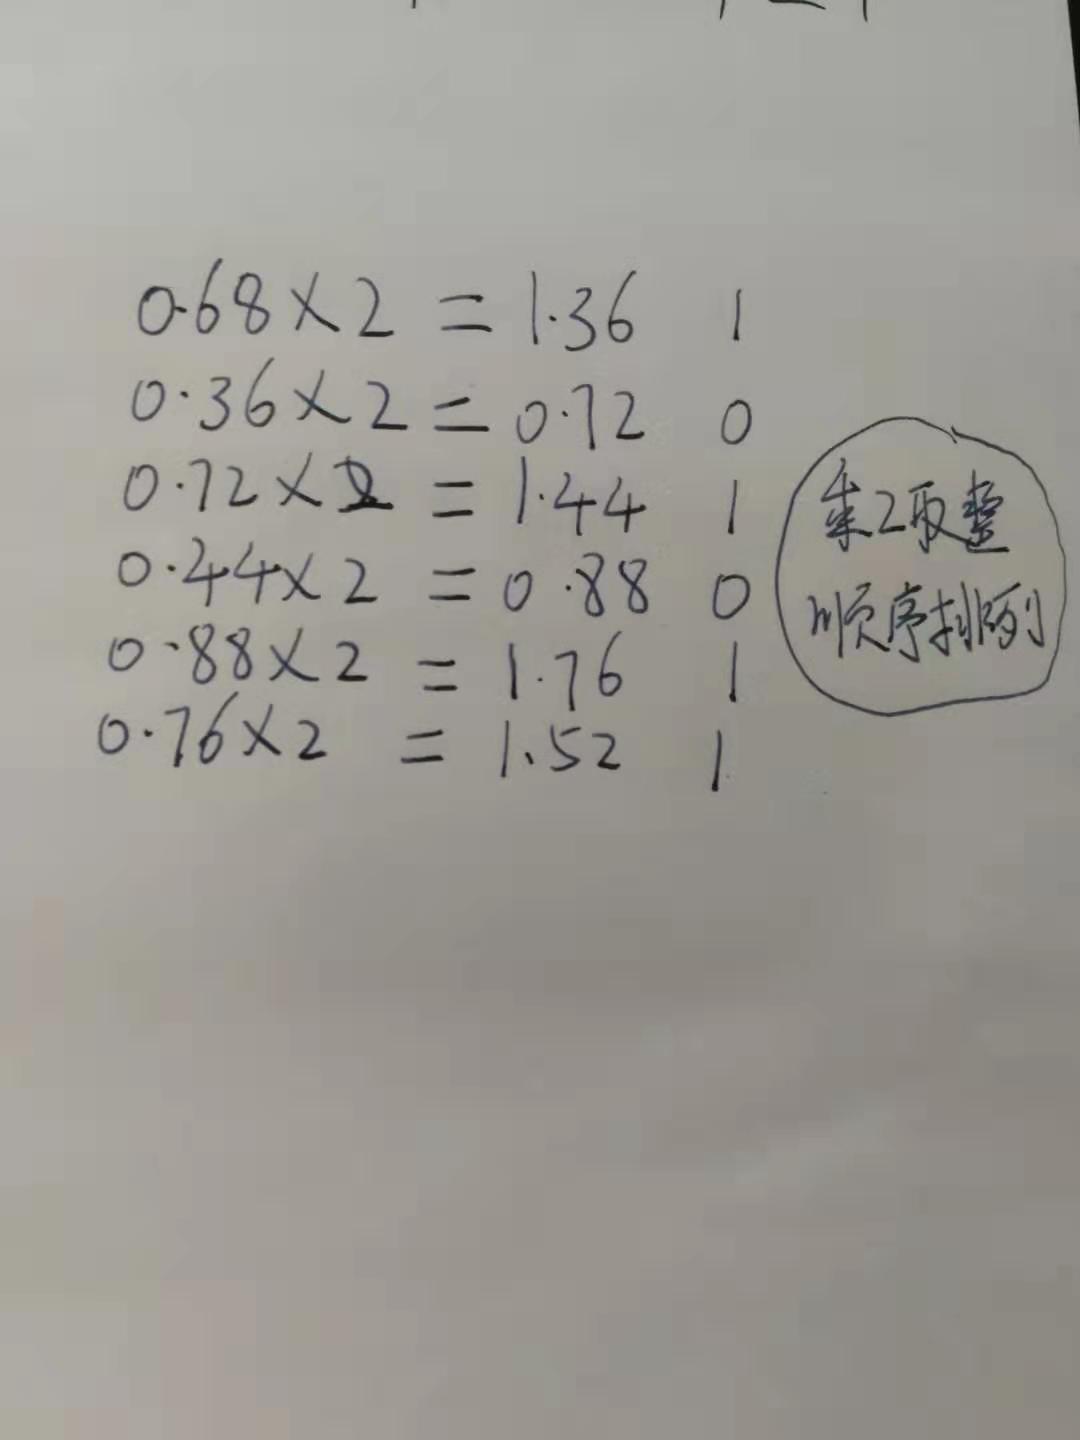 0.68×2=1.36 1
0.36×2=0.72 0
0.72×2=1.44 1
0.44×2=0.88 0
0.88×2=1.76 1
0.76×2=1.52 1
乘2取整
顺序排列